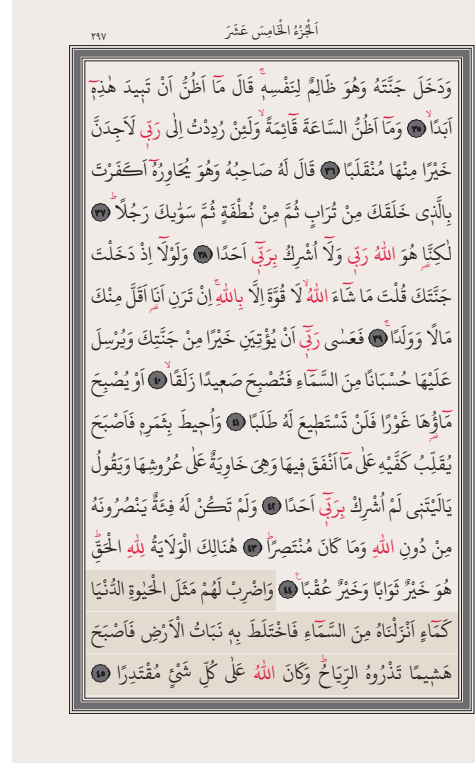 اَلْجُزْءُ الْخَامِسَ عَشَرَ
٢٩٧
وَدَخَلَ جَنَّتَهُ وَهُوَ ظَالِمٌ لِنَفْسِه۪ۚ قَالَ مَٓا اَظُنُّ اَنْ تَب۪يدَ هٰذِه۪ٓ
اَبَدًاۙ ﴿٣٥﴾ وَمَٓا اَظُنُّ السَّاعَةَ قَٓائِمَةًۙ وَلَئِنْ رُدِدْتُ اِلٰى رَبّ۪ي لَاَجِدَنَّ
خَيْرًا مِنْهَا مُنْقَلَبًا ﴿٣٦﴾ قَالَ لَهُ صَاحِبُهُ وَهُوَ يُحَاوِرُهُٓ اَكَفَرْتَ
بِالَّذ۪ي خَلَقَكَ مِنْ تُرَابٍ ثُمَّ مِنْ نُطْفَةٍ ثُمَّ سَوّٰيكَ رَجُلًاۜ ﴿٣٧﴾
لٰكِنَّا۬ هُوَ اللّٰهُ رَبّ۪ي وَلَٓا اُشْرِكُ بِرَبّ۪ٓي اَحَدًا ﴿٣٨﴾ وَلَوْلَٓا اِذْ دَخَلْتَ
جَنَّتَكَ قُلْتَ مَا شَٓاءَ اللّٰهُۙ لَا قُوَّةَ اِلَّا بِاللّٰهِۚ اِنْ تَرَنِ اَنَا۬ اَقَلَّ مِنْكَ
مَالًا وَوَلَدًاۚ ﴿٣٩﴾ فَعَسٰى رَبّ۪ٓي اَنْ يُؤْتِيَنِ خَيْرًا مِنْ جَنَّتِكَ وَيُرْسِلَ
عَلَيْهَا حُسْبَانًا مِنَ السَّمَٓاءِ فَتُصْبِحَ صَع۪يدًا زَلَقًاۙ ﴿٤٠﴾ اَوْ يُصْبِحَ
مَٓاؤُ۬هَا غَوْرًا فَلَنْ تَسْتَط۪يعَ لَهُ طَلَبًا ﴿٤١﴾ وَاُح۪يطَ بِثَمَرِه۪ فَاَصْبَحَ
يُقَلِّبُ كَفَّيْهِ عَلٰى مَٓا اَنْفَقَ ف۪يهَا وَهِيَ خَاوِيَةٌ عَلٰى عُرُوشِهَا وَيَقُولُ
يَالَيْتَن۪ي لَمْ اُشْرِكْ بِرَبّ۪ٓي اَحَدًا ﴿٤٢﴾ وَلَمْ تَكُنْ لَهُ فِئَةٌ يَنْصُرُونَهُ
مِنْ دُونِ اللّٰهِ وَمَا كَانَ مُنْتَصِرًاۜ ﴿٤٣﴾ هُنَالِكَ الْوَلَايَةُ لِلّٰهِ الْحَقِّۜ
هُوَ خَيْرٌ ثَوَابًا وَخَيْرٌ عُقْبًا۟ ﴿٤٤﴾ وَاضْرِبْ لَهُمْ مَثَلَ الْحَيٰوةِ الدُّنْيَا
كَمَٓاءٍ اَنْزَلْنَاهُ مِنَ السَّمَٓاءِ فَاخْتَلَطَ بِه۪ نَبَاتُ الْاَرْضِ فَاَصْبَحَ
هَش۪يمًا تَذْرُوهُ الرِّيَاحُۜ وَكَانَ اللّٰهُ عَلٰى كُلِّ شَيْءٍ مُقْتَدِرًا ﴿٤٥﴾